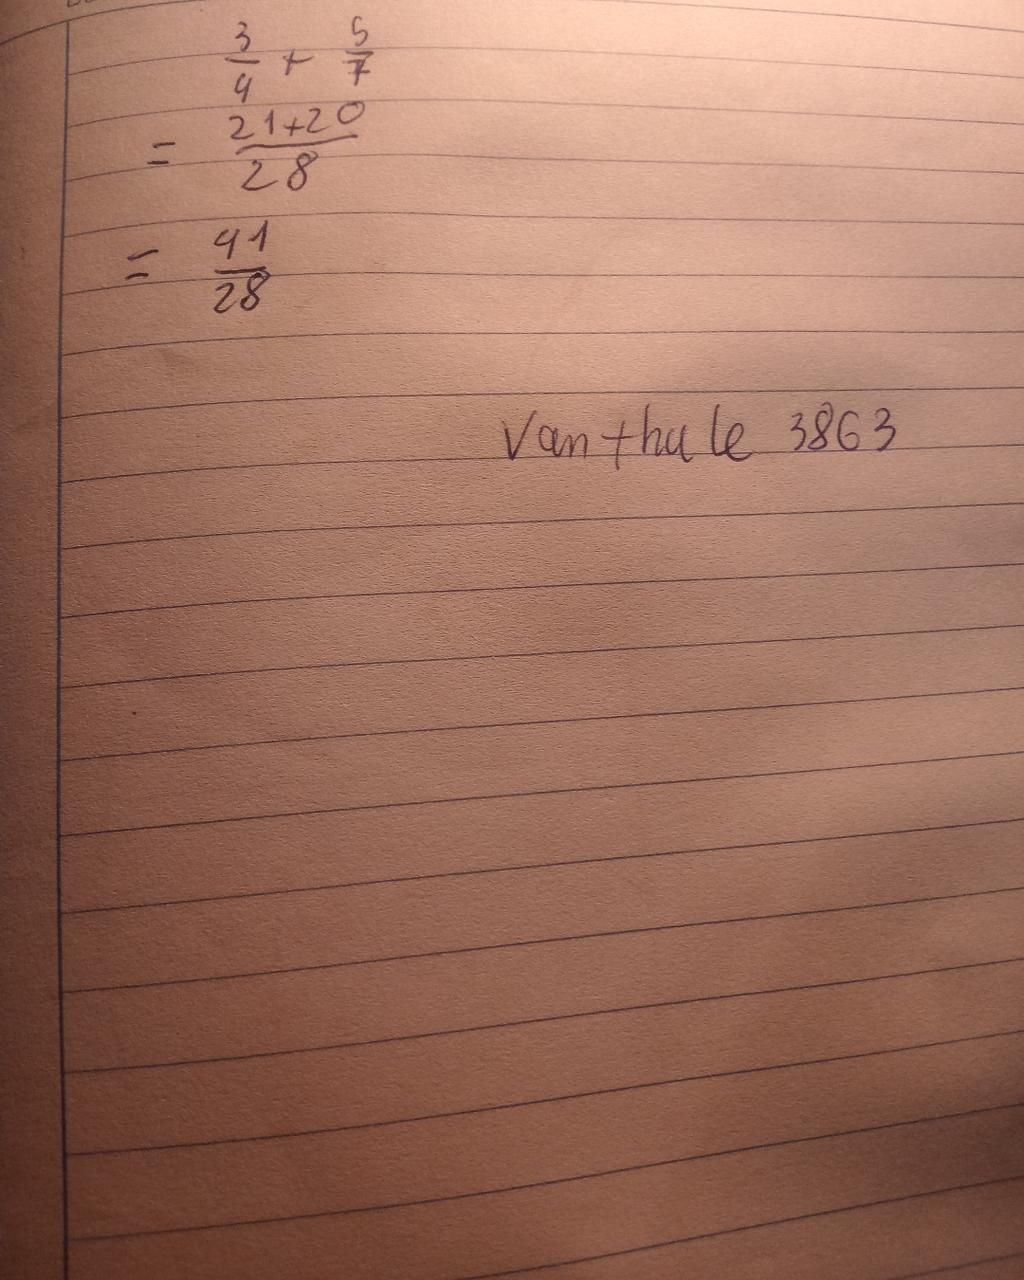 3/4 + 5/7
= 21+20/28
= 41/28
Vanthule 3863